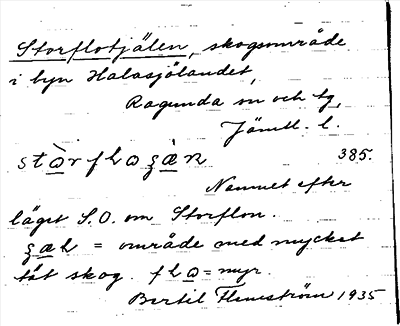 Storflotjälen, skogsområde
i byn Halasjölandet,
Ragunda sn och tg,
Jämtl. l.
385.
Namnet efter
läget S.O. om Storflon.
= område med mycket
tät skog. = myr.
Bertil Flemström 1935